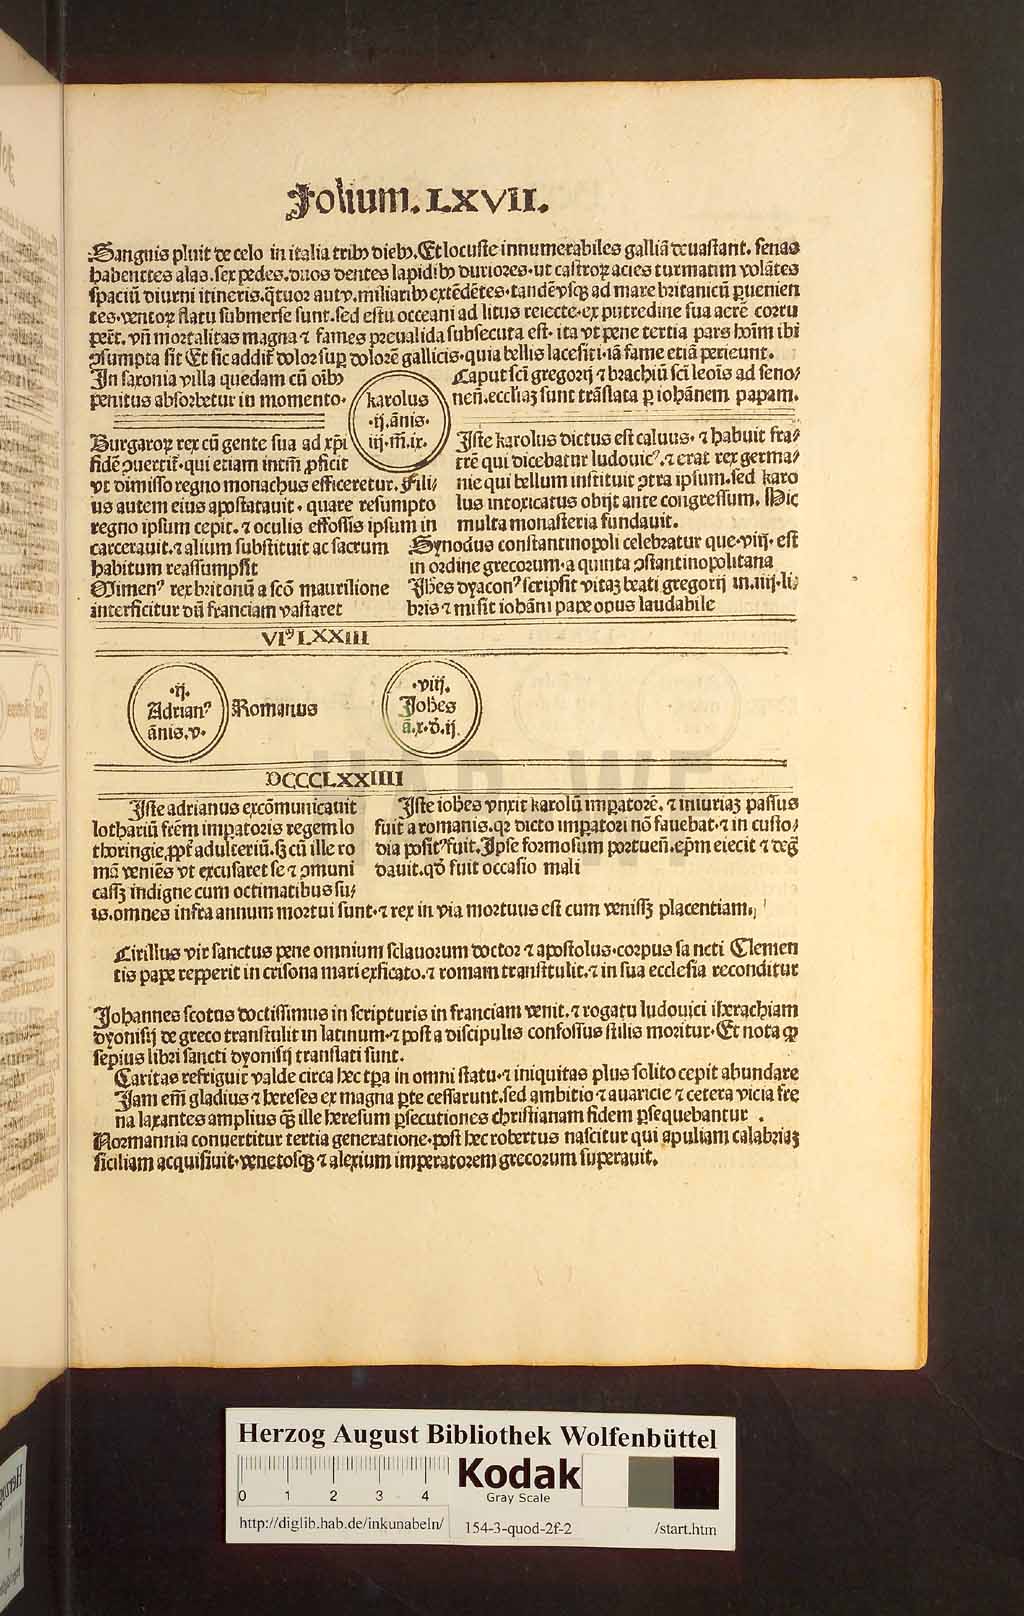 Folium. LXVII.
Sanguis pluit de celo in italia tribꝰ diebꝰ. Et locuste innumerabiles galliā deuastant. senas
habenttes alas. sex pedes. duos dentes lapidibꝰ duriores. ut castroꝝ acies turmatim volātes
spaciū diurni itineris. q̄tuor aut v. miliaribꝰ extēdētes. tandē vsqꝫ ad mare britanicū ꝑuenien
tes. ventoꝝ flatu submerse sunt. sed estu occeani ad litus reiecte. ex putredine sua aerē corru
pert̄. vn̄ mortalitas magna ⁊ fames preualida subsecuta est. ita vt pene tertia pars hoīm ibi
ꝯsumpta sit Et sic addit̄ dolor suꝑ dolorē gallicis. quia bellis lacesiti. iā fame etiā perieunt.
In saxonia villa quedam cū oībꝰ
penitus absorbetur in momento.
karolus
.ij. ānis.
iij. m̄. ix.
Caput sc̄i gregorij ⁊ brachiū sc̄i leōis ad seno/
nen̄. eccliaꝫ sunt trāslata ꝑ iohānem papam.
Burgaroꝝ rex cū gente sua ad xp̄i
fidē ꝯuertit̄. qui etiam intm̄ ꝓficit
vt dimisso regno monachus efficeretur. Fili/
us autem eius apostatauit. quare resumpto
regno ipsum cepit. ⁊ oculis effossis ipsum in
carcerauit. ⁊ alium substituit ac sacrum
habitum reassumpsit
Mimenꝰ rex britonū a scō maurilione
interficitur dū franciam vastaret
Iste karolus dictus est caluus. ⁊ habuit fra/
trē qui dicebatur ludouicꝰ. ⁊ erat rex germa/
nie qui bellum instituit ꝯtra ipsum. sed karo
lus intoxicatus obijt ante congressum. Hic
multa monasteria fundauit.
Synodus constantinopoli celebratur que. viij. est
in ordine grecorum. a quinta ꝯstantinopolitana
Ioh̄es dyaconꝰ scripsit vitaꝫ beati gregorij in. iiij. li/
bris ⁊ misit iohāni pape opus laudabile
VIꝰ LXXIII
.ij.
Adrianꝰ
ānis. v.
Romanus
.viij.
Joh̄es
ā. x. d̄. ij.
DCCCCLXXIIII
Iste adrianus excōmunicauit
lothariū frēm imꝑatoris regem lo
thoringie ꝓpt̄ adulteriū. sꝫ cū ille ro
mā veniēs vt excusaret se ⁊ ꝯmuni
cassꝫ indigne cum octimatibus su/
is. omnes infra annum mortui sunt. ⁊ rex in via mortuus est cum venissꝫ placentiam.
Iste ioh̄es vnxit karolū imꝑatorē. ⁊ iniuriaꝫ passus
fuit a romanis. qꝛ dicto imꝑatori nō fauebat. ⁊ in custo/
dia positꝰ fuit. Ipse formosum portuen̄. epm̄ eiecit ⁊ deg̃
dauit. qd̄ fuit occasio mali
Cirillus vir sanctus pene omnium sclauorum doctor ⁊ apostolus. corpus sa ncti Clemen
tis pape repperit in crisona mari exsicato. ⁊ romam transtulit. ⁊ in sua ecclesia reconditur
Johannes scotus doctissimus in scripturis in franciam venit. ⁊ rogatu ludouici iherachiam
dyonisij de greco transtulit in latinum. ⁊ post a discipulis confossus stilis moritur. Et nota ꝙ
sepius libri sancti dyonisij translati sunt.
Caritas refriguit valde circa hec tp̄a in omni statu. ⁊ iniquitas plus solito cepit abundare
Jam em̄ gladius ⁊ hereses ex magna ꝑte cessarunt. sed ambitio ⁊ auaricie ⁊ cetera vicia fre
na laxantes amplius qꝫ ille heresum ꝑsecutiones christianam fidem ꝑsequebantur .
Normannia conuertitur tertia generatione. post hec robertus nascitur qui apuliam calabriaꝫ
siciliam acquisiuit. venetosqꝫ ⁊ alexium imperatorem grecorum superauit.
HAB WF
Herzog August Bibliothek Wolfenbüttel
0 1 2 3 4
Kodak
Gray Scale
http://diglib.hab.de/inkunabeln/ 154-3-quod-2f-2 /start.htm